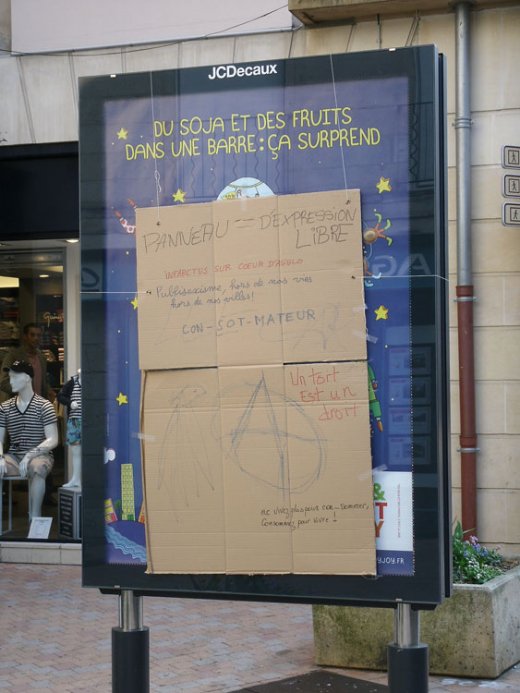 JCDecaux
DU SOJA ET DES FRUITS
DANS UNE BARRE : ÇA SURPREND
PANNEAU D'EXPRESSION
LIBRE
INFARCTUS SUR COEUR D'AGGLO
Publisexisme, hors de nos vies
hors de nos villes!
CON-SOT-MATEUR
Un tort
Est un
droit
ne vivez plus pour con-sommer,
Consommez pour vivre !